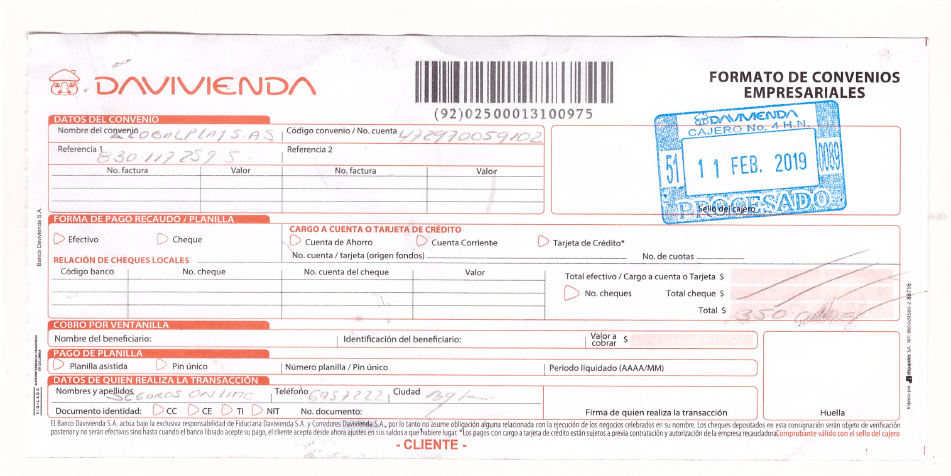 DAVIVIENDA
(92)02500013100975
FORMATO DE CONVENIOS
EMPRESARIALES
DAVIVIENDA
CAJERO No. 4 H.N.
51 11 FEB. 2019 0089
PROCESADO
Sello del cajero
DATOS DEL CONVENIO
Nombre del convenio GLOBALPLAY S.A.S Código convenio / No. cuenta 472970059102
Referencia 1 830117259 5 Referencia 2
No. factura Valor No. factura Valor
FORMA DE PAGO RECAUDO / PLANILLA
Efectivo Cheque
CARGO A CUENTA O TARJETA DE CRÉDITO
Cuenta de Ahorro Cuenta Corriente Tarjeta de Crédito*
No. cuenta / tarjeta (origen fondos) No. de cuotas
RELACIÓN DE CHEQUES LOCALES
Código banco No. cheque No. cuenta del cheque Valor
Total efectivo / Cargo a cuenta o Tarjeta $
No. cheques Total cheque $
Total $ 350
COBRO POR VENTANILLA
Nombre del beneficiario: Identificación del beneficiario: Valor a cobrar $
PAGO DE PLANILLA
Planilla asistida Pin único Número planilla / Pin único Periodo liquidado (AAAA/MM)
DATOS DE QUIEN REALIZA LA TRANSACCIÓN
Nombres y apellidos Teléfono 6957222 Ciudad
Documento identidad: CC CE TI NIT No. documento: Firma de quien realiza la transacción Huella
El Banco Davivienda S.A. actúa bajo la exclusiva responsabilidad de Fiduciaria Davivienda S.A. y Corredores Davivienda S.A., por lo tanto no asume obligación alguna relacionada con la ejecución de los negocios celebrados en su nombre. Los cheques depositados en esta consignación serán objeto de verificación
posterior y no serán efectivos sino hasta cuando el banco librado acepte su pago, el cliente acepta desde ahora ajustes en sus saldos a que hubiere lugar. *Los pagos con cargo a tarjeta de crédito están sujetos a previa contratación y autorización de la empresa recaudadora. Comprobante válido con el sello del cajero
- CLIENTE -
Banco Davivienda S.A.
VIGILADO